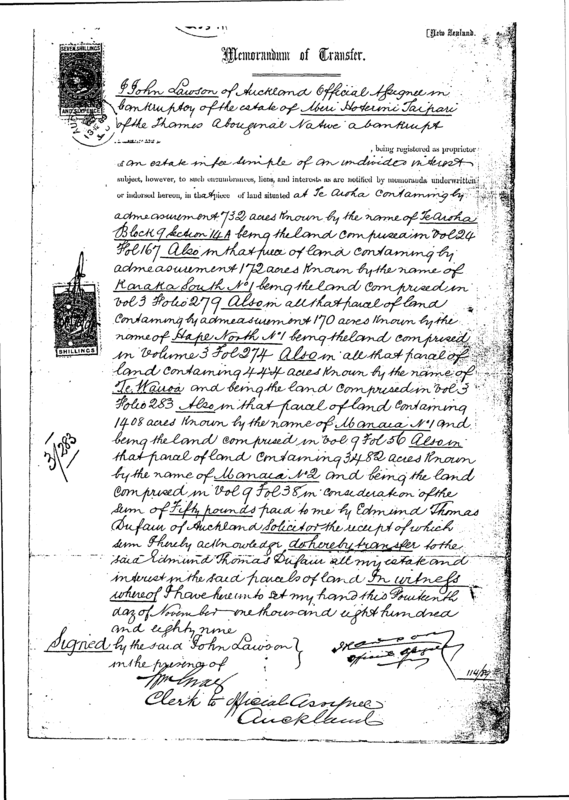 [New Zealand.
Memorandum of Transfer.
SEVEN SHILLINGS
AND SIXPENCE
I John Lawson of Auckland Official Assignee in
bankruptcy of the estate of Meri Hoterini Taipari
of the Thames Aboriginal Native a bankrupt
, being registered as proprietor
of an estate in fee simple of an undivided interest
subject, however, to such encumbrances, liens, and interests as are notified by memoranda underwritten
or indorsed hereon, in that piece of land situated at Te Aroha Containing by
admeasurement 732 acres Known by the name of Te Aroha
Block 9 Section 14A being the land comprised in Vol 24
Fol 167 Also in that piece of land containing by
admeasurement 172 acres Known by the name of
Karaka South No 1 being the land comprised in
vol 3 Folio 279 Also in all that parcel of land
Containing by admeasurement 170 acres Known by the
name of Hape North No 1 being the land comprised
in Volume 3 Fol 274 Also in all that parcel of
land containing 444 acres Known by the name of
Te Wauoa and being the land comprised in vol 3
SHILLINGS
Folio 283 Also in that parcel of land Containing
1408 acres Known by the name of Manaia No 1 and
being the land comprised in vol 9 Fol 56 Also in
3/283
that parcel of land containing 3482 acres Known
by the name of Manaia No 2 and being the land
comprised in Vol 9 Fol 38 in consideration of the
sum of Fifty pounds paid to me by Edmund Thomas
Dufaur of Auckland Solicitor the receipt of which
sum I hereby acknowledge do hereby transfer to the
said Edmund Thomas Dufaur all my estate and
interest in the said parcels of land In witness
whereof I have hereunto set my hand this Fourteenth
day of November one thousand eight hundred
and eighty nine
Signed by the said John Lawson
in the presence of
J Lawson
Official Assignee
114/89
Clerk to Official Assignee
Auckland